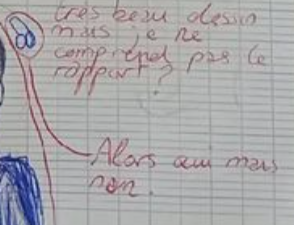 très beau dessin
mais je ne
comprend pas le
rapport ?
Alors oui mais
non.